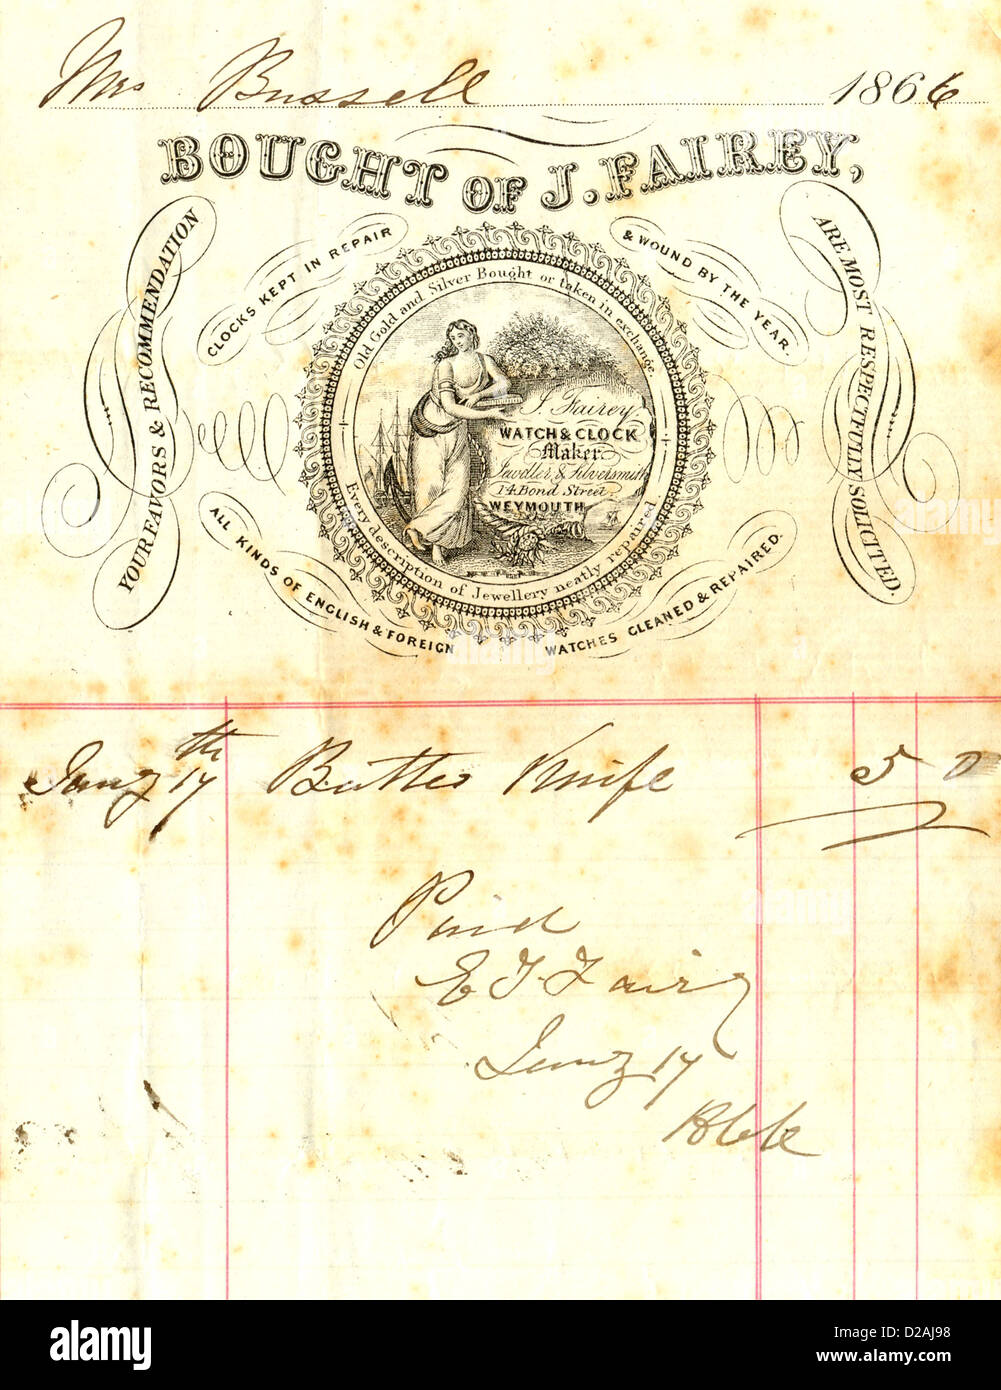 Mrs Bussell 1866
BOUGHT OF J. FAIREY,
YOUR FAVORS & RECOMMENDATION
ARE MOST RESPECTFULLY SOLICITED.
CLOCKS KEPT IN REPAIR
& WOUND BY THE YEAR.
Old Gold and Silver Bought or taken in exchange.
J. Fairey.
WATCH & CLOCK
Maker
Jeweller & Silversmith
14 Bond Street.
WEYMOUTH
Every description of Jewellery neatly repaired.
ALL KINDS OF ENGLISH & FOREIGN
WATCHES CLEANED & REPAIRED.
Jany 17th Butter Knife 5 0
Paid
Fairey
Jany 17
alamy
Image ID: D2AJ98
www.alamy.com